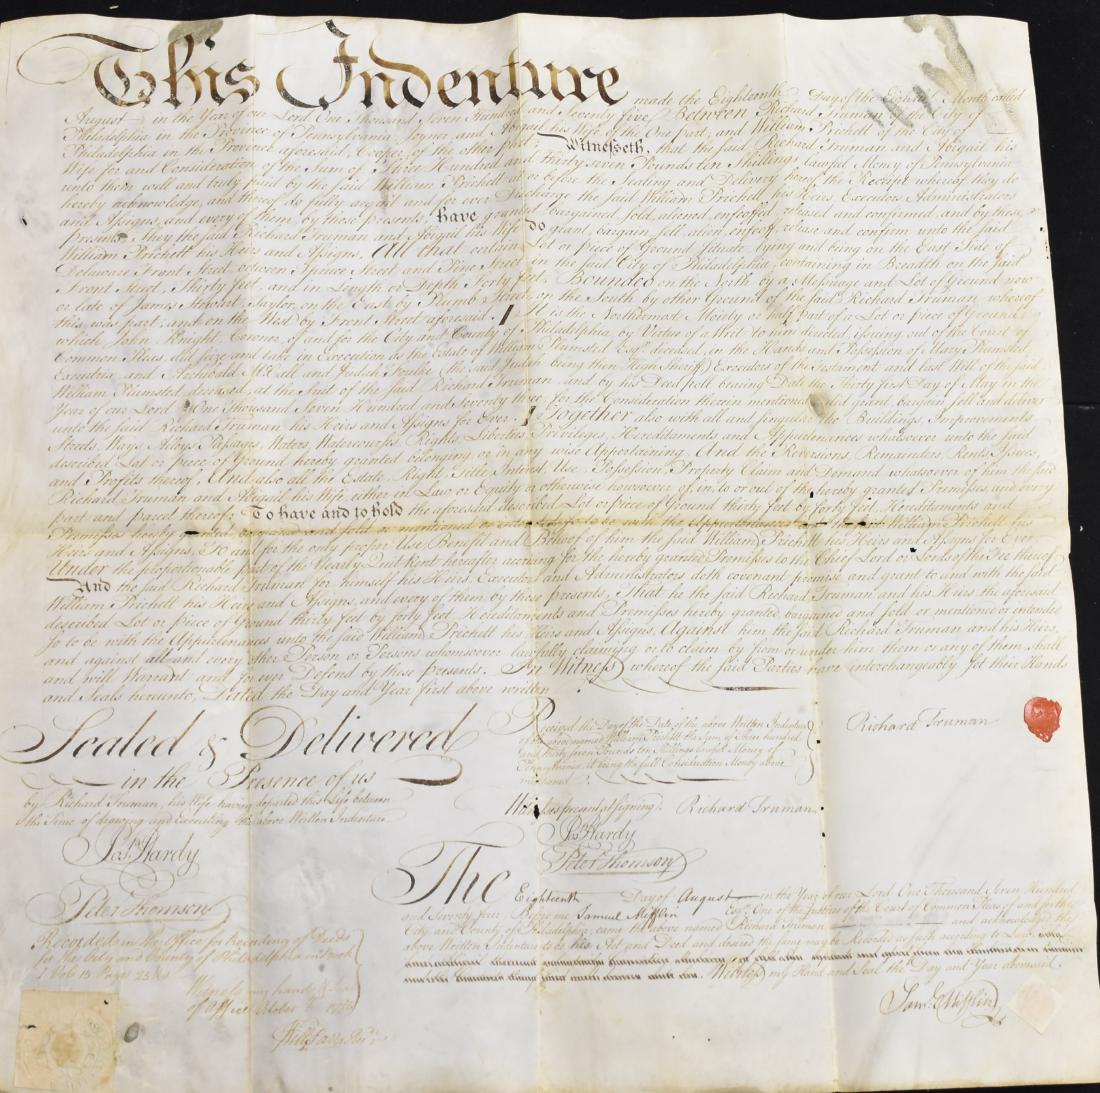 This Indenture made the Eighteenth Day of the Eighth Month called
August in the Year of our Lord One Thousand Seven Hundred and Seventy five Between Richard Truman of the City of
Philadelphia in the Province of Pennsylvania Joyner, and Abigail his Wife of the One part, and William Prichett of the City of
Philadelphia in the Province aforesaid, of the other part: Witnesseth, that the said Richard Truman and Abigail his
Wife for and Consideration of the Sum of Three Hundred and thirty seven Pounds ten Shillings lawful Money of Pennsylvania
unto them well and truly paid by the said William Prichett at or before the Sealing and Delivery hereof the Receipt whereof they do
hereby acknowledge, and thereof do fully acquit and for ever Discharge the said William Prichett, his Heirs, Executors Administrators
and Assigns, and every of them by these presents, Have granted bargained, sold, aliened, enfeoffed, released and confirmed, and by these
presents they the said Richard Truman and Abigail his Wife Do grant, bargain, sell alien enfeoff, release and confirm unto the said
William Prichett his Heirs and Assigns, All that certain Lot or piece of Ground situate lying and being on the East Side of
Delaware Front Street between Spruce Street and Pine Street in the said City of Philadelphia, containing in Breadth on the said
Front Street, Thirty feet, and in Length or Depth Forty feet. Bounded on the North by a Messuage and Lot of Ground now
or late of James Stewart, Taylor, on the East by Plumb Street on the South by other Ground of the said Richard Truman, whereof
this was part, and on the West by Front Street aforesaid. It is the Northermost Moiety or half Part of a Lot or piece of Ground
which John Knight, Coroner, of and for the City and County of Philadelphia, by Virtue of a Writ to him directed issuing out of the Court of
Common Pleas did seize and take in Execution as the Estate of William Plumsted Esqr. deceased, in the Hands and Possession of Mary Plumsted
Executrix, and Archibald McCall and Judah Foulke (the said Judah being then High Sheriff) Executors of the Testament and last Will of the said
William Plumsted deceased, at the Suit of the said Richard Truman, and by his Deed poll bearing Date the Thirty first Day of May in the
Year of our Lord One Thousand Seven Hundred and Seventy three for the Consideration therein mentioned did grant bargain sell and deliver
unto the said Richard Truman his Heirs and Assigns for Ever. Together also with all and singular the Buildings, Improvements
Streets, Ways Alleys Passages, Waters Watercourses, Rights Liberties Privileges, Hereditaments and Appurtenances whatsoever unto the said
described Lot or piece of Ground hereby granted belonging or in any wise Appertaining, And the Reversions, Remainders, Rents Issues,
and Profits thereof, And also all the Estate, Right, Title Interest, Use, Possession Property Claim and Demand whatsoever of him the said
Richard Truman and Abigail his Wife, either in Law or Equity or otherwise howsoever of, in, to or out of the hereby granted Premises, and every
part and parcel thereof: To have and to hold the aforesaid described Lot or piece of Ground thirty feet by forty feet Hereditaments and
Premises hereby granted bargained and sold or mentioned or intended so to be with the Appurtenances unto the said William Prichett his
Heirs and Assigns, To and for the only proper Use, Benefit and Behoof of him the said William Prichett his Heirs and Assigns for Ever
Under the proportionable part of the Yearly Quit Rent hereafter accruing for the hereby granted Premises to the Chief Lord or Lords of the Fee thereof
And the said Richard Truman for himself his Heirs, Executors and Administrators doth covenant promise and grant to and with the said
William Prichett his Heirs and Assigns, and every of them by these presents, That he the said Richard Truman and his Heirs the aforesaid
described Lot or piece of Ground thirty feet by forty feet Hereditaments and Premises hereby granted, bargained and sold or mentioned or intended
so to be with the Appurtenances unto the said William Prichett his Heirs and Assigns, Against him the said Richard Truman and his Heirs,
and against all and every other Person or Persons whomsoever lawfully claiming or to claim by from or under him them or any of them, shall
and will Warrant and for ever Defend by these presents. In Witness whereof the said Parties have interchangeably set their Hands
and Seals hereunto, Dated the Day and Year first above written
Sealed & Delivered
in the Presence of us
by Richard Truman, his Wife having departed this Life between
the Time of drawing and Executing the above Written Indenture
Jos. Hardy
Peter Thomson
Received the Day of the Date of the above Written Indenture
of the above named William Prichett the Sum of Three hundred
and thirty seven Pounds ten Shillings lawful Money of
Pennsylvania it being the full Consideration Money above
mentioned
Witnesses present at signing. Richard Truman
Jos. Hardy
Peter Thomson
Richard Truman
The Eighteenth Day of August in the Year of our Lord One Thousand Seven Hundred
and Seventy five Before me Samuel Mifflin Esqr. One of the Justices of the Court of Common Pleas of and for the
City and County of Philadelphia, came the above named Richard Truman and acknowledged the
above Written Indenture to be his Act and Deed and desired the same may be Recorded as such according to Law
Witness my Hand and Seal the Day and Year abovesaid
Saml. Mifflin
Recorded in the Office for Recording of Deeds
for the City and County of Philadelphia in Book
I Vol. 15 Page 25
Witness my hand & Seal
of Office October